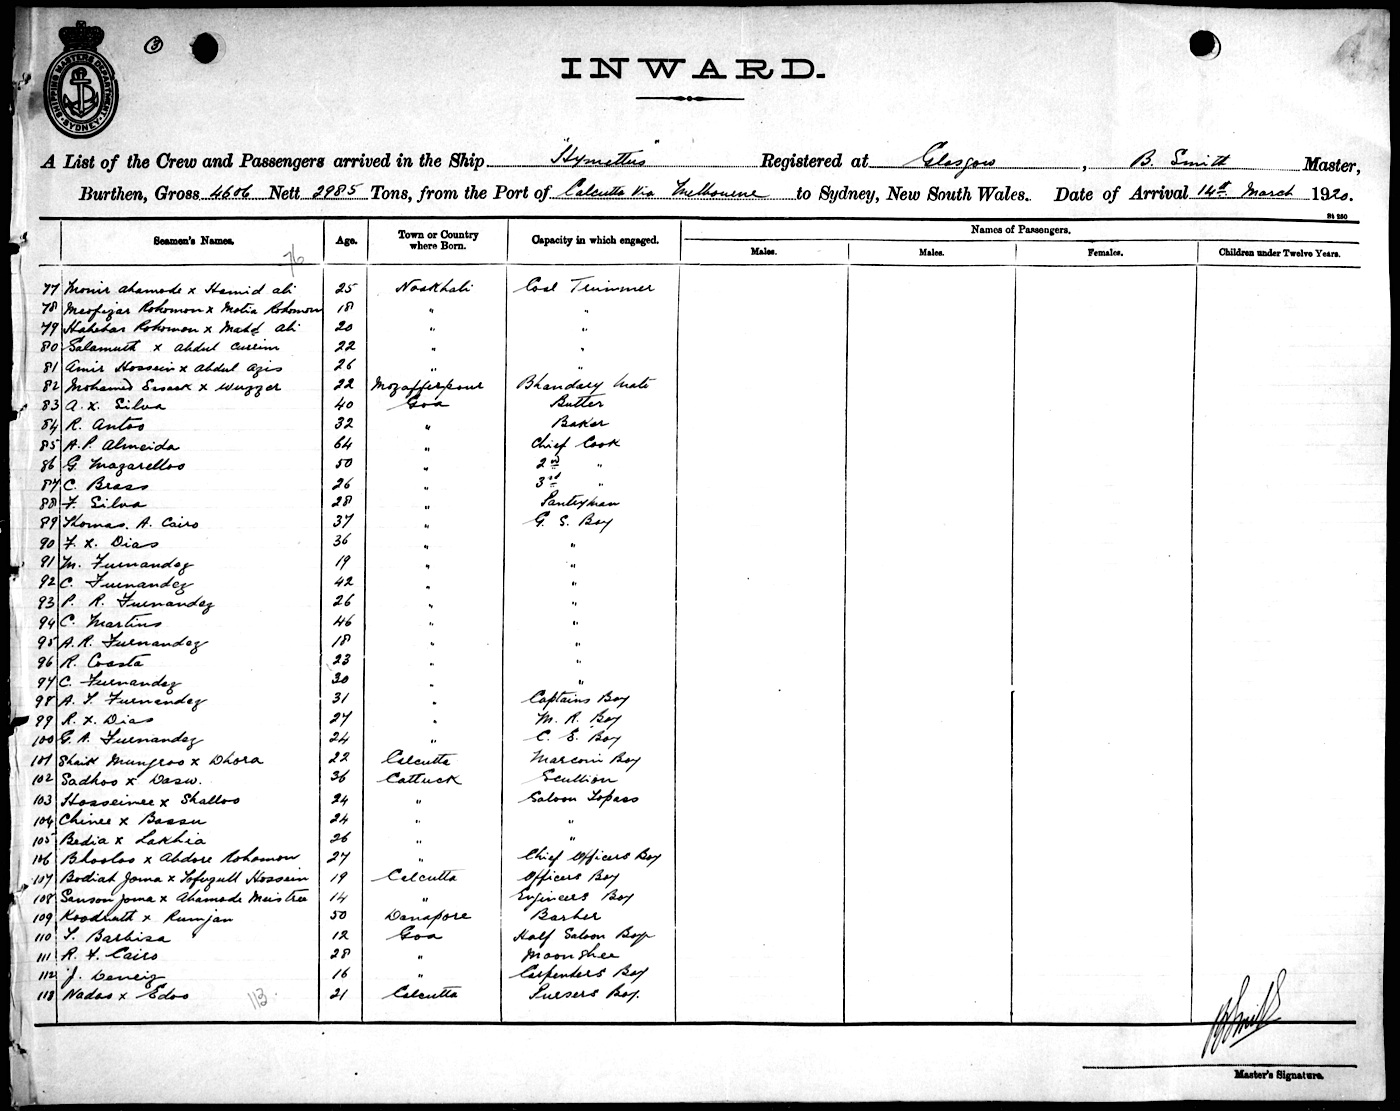 ③
SHIPPING MASTERS DEPARTMENT
SYDNEY
INWARD.
A List of the Crew and Passengers arrived in the Ship "Hymettus" Registered at Glasgow, B. Smith Master,
Burthen, Gross 4606 Nett 2985 Tons, from the Port of Calcutta via Melbourne to Sydney, New South Wales. Date of Arrival 14th March 1920.
St 230
Seamen's Names. Age. Town or Country where Born. Capacity in which engaged. Names of Passengers.
Males. Males. Females. Children under Twelve Years.
76
77 Monir Ahamode x Hamid Ali 25 Noakhali Coal Trimmer
78 Meofizar Rohomon x Motia Rohomon 18 " "
79 Habebar Rohomon x Mahd Ali 20 " "
80 Salamuth x Abdul Currim 22 " "
81 Amir Hossein x Abdul Azis 26 " "
82 Mohamed Esack x Wuzzer 22 Mozafferpour Bhandary Mate
83 A. X. Silva 40 Goa Butler
84 R. Antao 32 " Baker
85 A. P. Almeida 64 " Chief Cook
86 G. Mazarellos 50 " 2nd "
87 C. Brass 26 " 3rd "
88 F. Silva 28 " Pantryman
89 Thomas. A. Cairo 37 " G. S. Boy
90 F. X. Dias 36 " "
91 M. Furnandez 19 " "
92 C. Furnandez 42 " "
93 P. R. Furnandez 26 " "
94 C. Martins 46 " "
95 A. R. Furnandez 18 " "
96 R. Coasta 23 " "
97 C. Furnandez 30 " "
98 A. S. Furnandez 31 " Captains Boy
99 R. X. Dias 27 " M. R. Boy
100 G. A. Furnandez 24 " C. E. Boy
101 Shaik Mungroo x Dhora 22 Calcutta Marconi Boy
102 Sadhoo x Dasw. 36 Cattuck Scullion
103 Hosseinee x Shalloo 24 " Saloon Topass
104 Chinee x Bassu 24 " "
105 Bedia x Lakhia 26 " "
106 Bhooloo x Abdore Rohomon 27 " Chief Officers Boy
107 Bodiah Joma x Tofuzull Hossein 19 Calcutta Officers Boy
108 Sanson Joma x Ahamode Meistree 14 " Engineers Boy
109 Koodrath x Rumjan 50 Danapore Barber
110 S. Barbisa 12 Goa Half Saloon Boy
111 R. F. Cairo 28 " Moonshee
112 J. 16 " Carpenters Boy
113 Nadoo x Edoo 21 Calcutta Pursers Boy.
113
B Smith
Master's Signature.